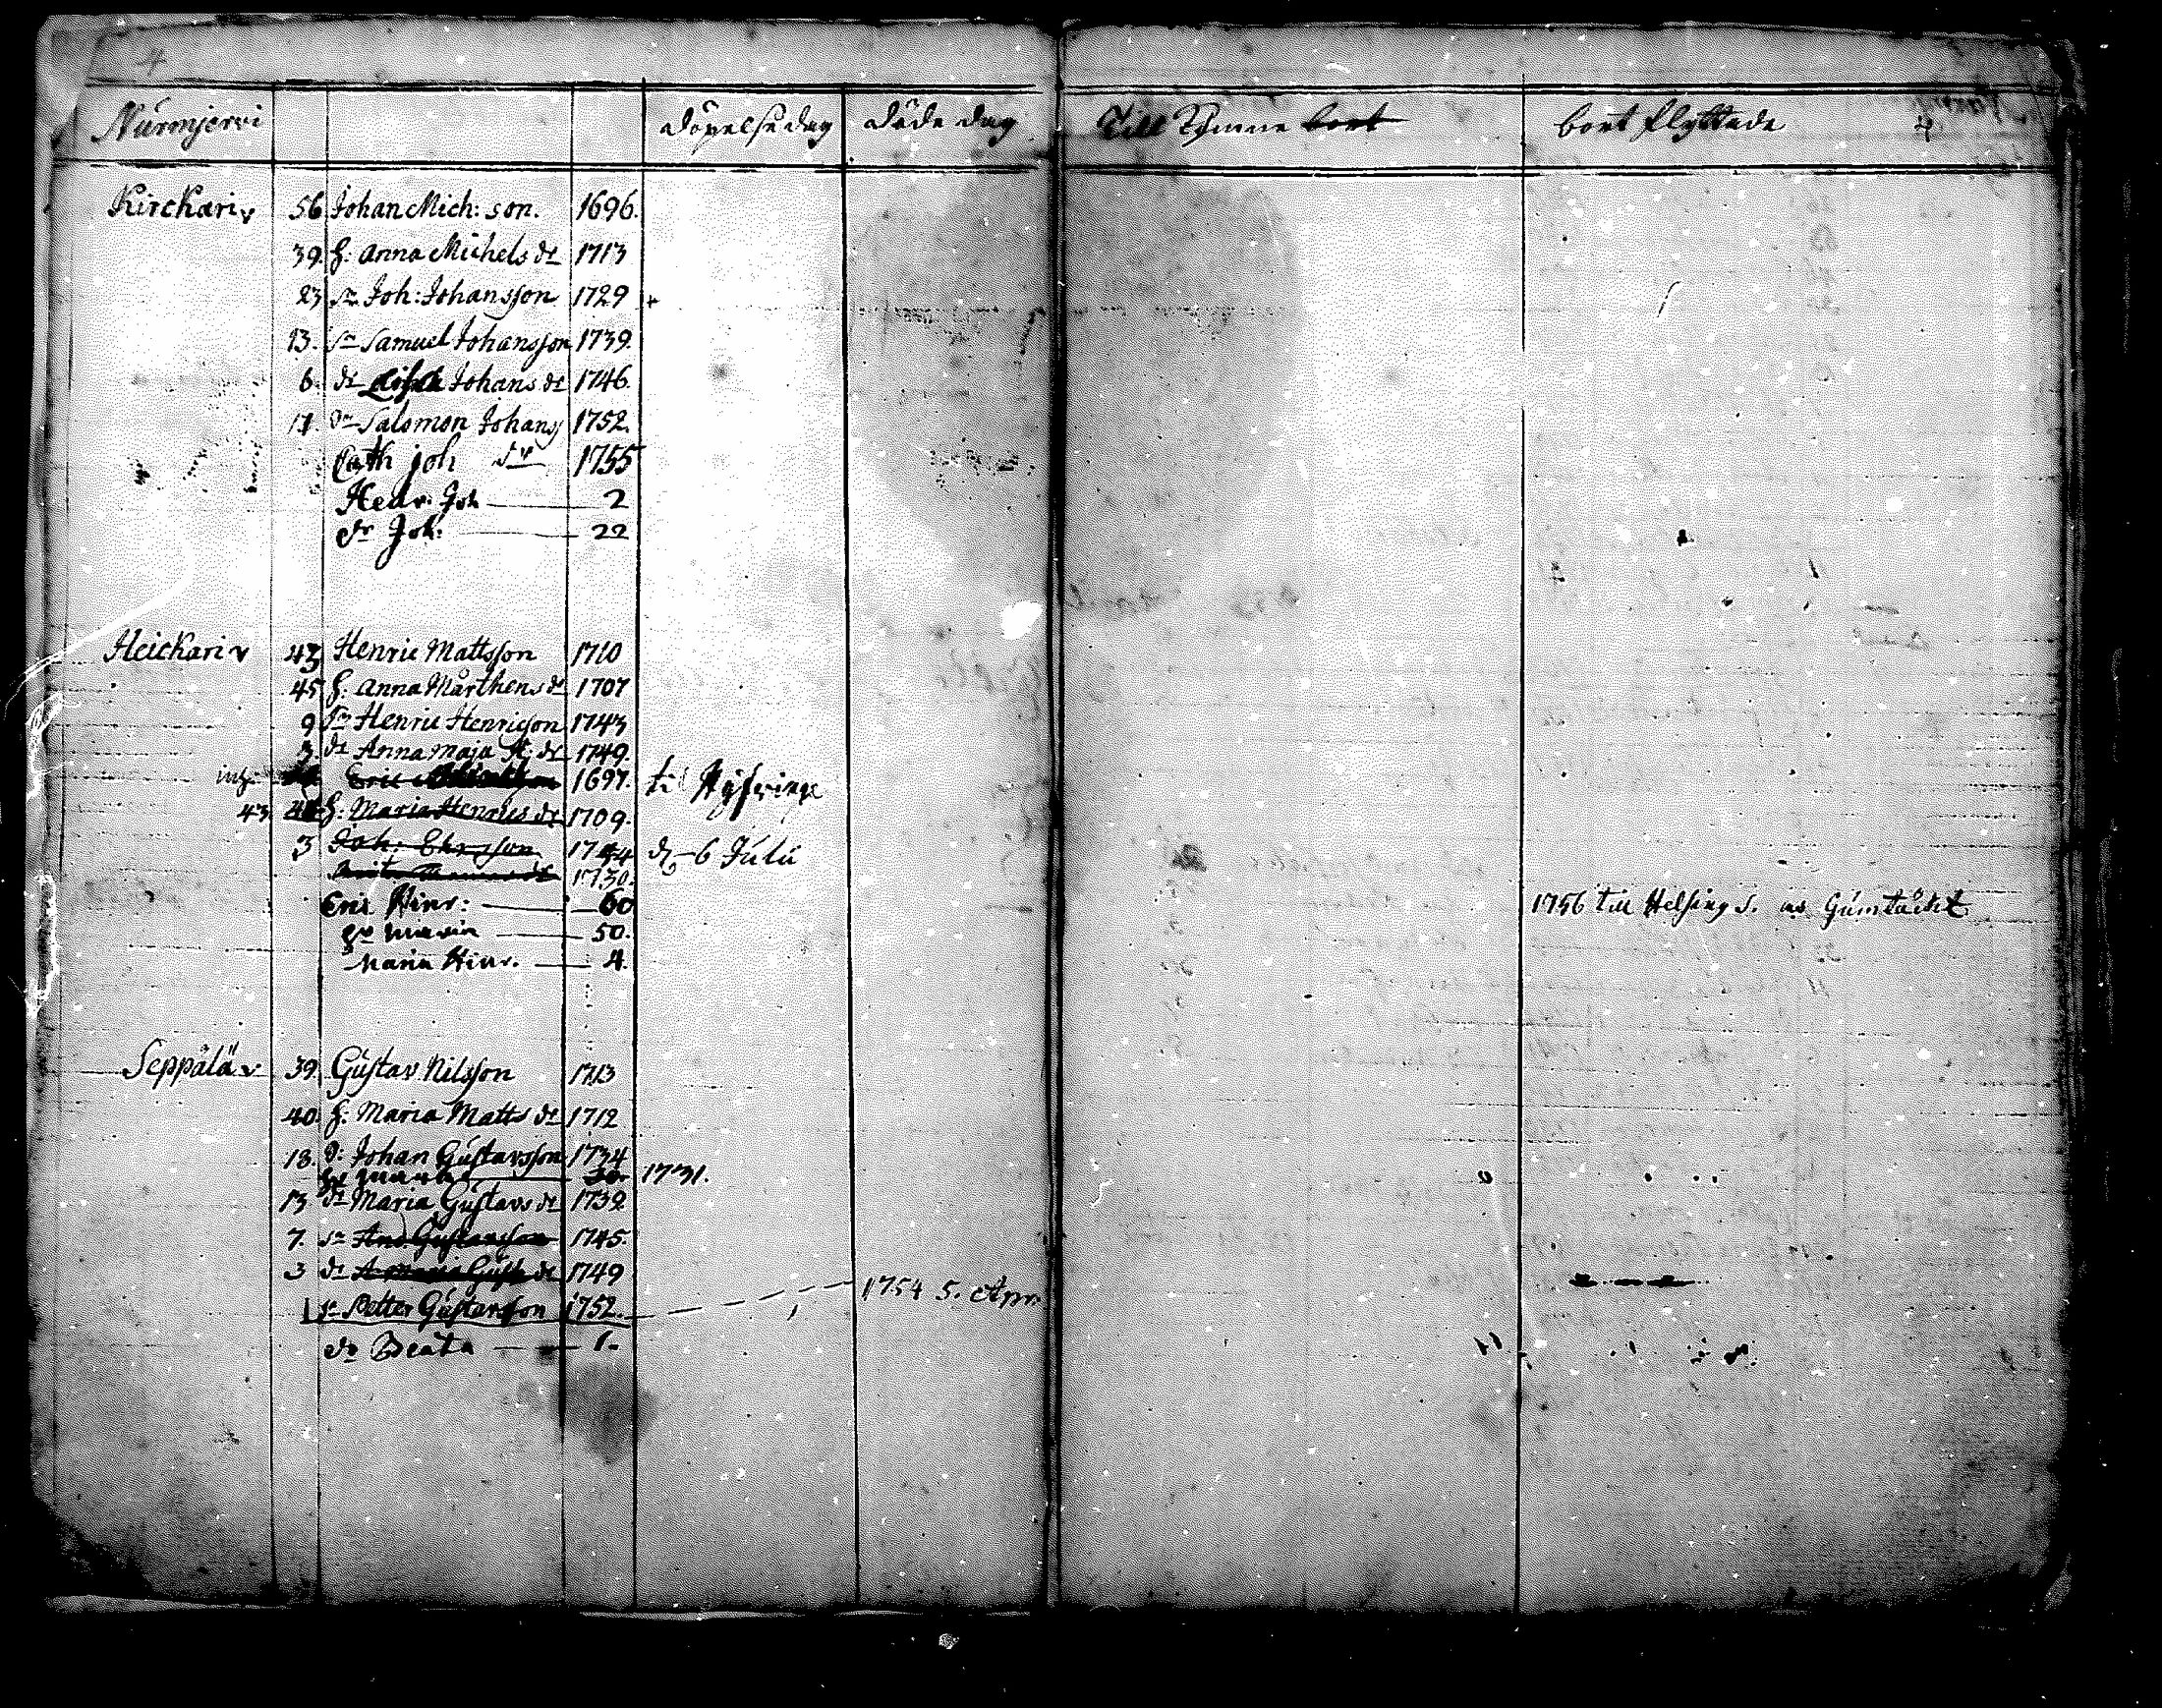 4
Nurmjerfvi döpelse dag döde dag Till Komne bort bort flyttade 4
Kirckari v 56 Johan Mich: son. 1696.
39. h: Anna Michels dr 1713
23 sn Joh: Johansson 1729 +
13. sn Samuel Johansson 1739.
6. dr Lisa Johans dr 1746.
1. sn Salomon Johans 1752.
Cath joh dr 1755
Hedv. Joh 2
dr Joh: 22
Heickari v 43 Henric Mattsson 1710
45 h: Anna Mårthens dr 1707
9 sn Henric Henricson 1743
3 dr Anna Maja H: dr 1749.
inh. Eric 1697. til Hyfvinge
43 h: Maria Henrics dr 1709.
3 Joh: Ehrsson 1744 d. 6 Julii
1730.
Eric Hinr: 60 1756 till Helsing s. us Gumtäckt
hu Maria 50.
Maria Hinr. 4.
Seppälä v 39. Gustav Nilsson 1713
40. h: Maria Matts dr 1712
18. s: Johan Gustavsson 1734
hu 20. 1731.
13. dr Maria Gustavs dr 1739.
7. sn And. Gustavsson 1745.
3 dr A Maria Gust dr 1749
1 sn Petter Gustavsson 1752. 1754 5. Apr.
dr Beata 1.